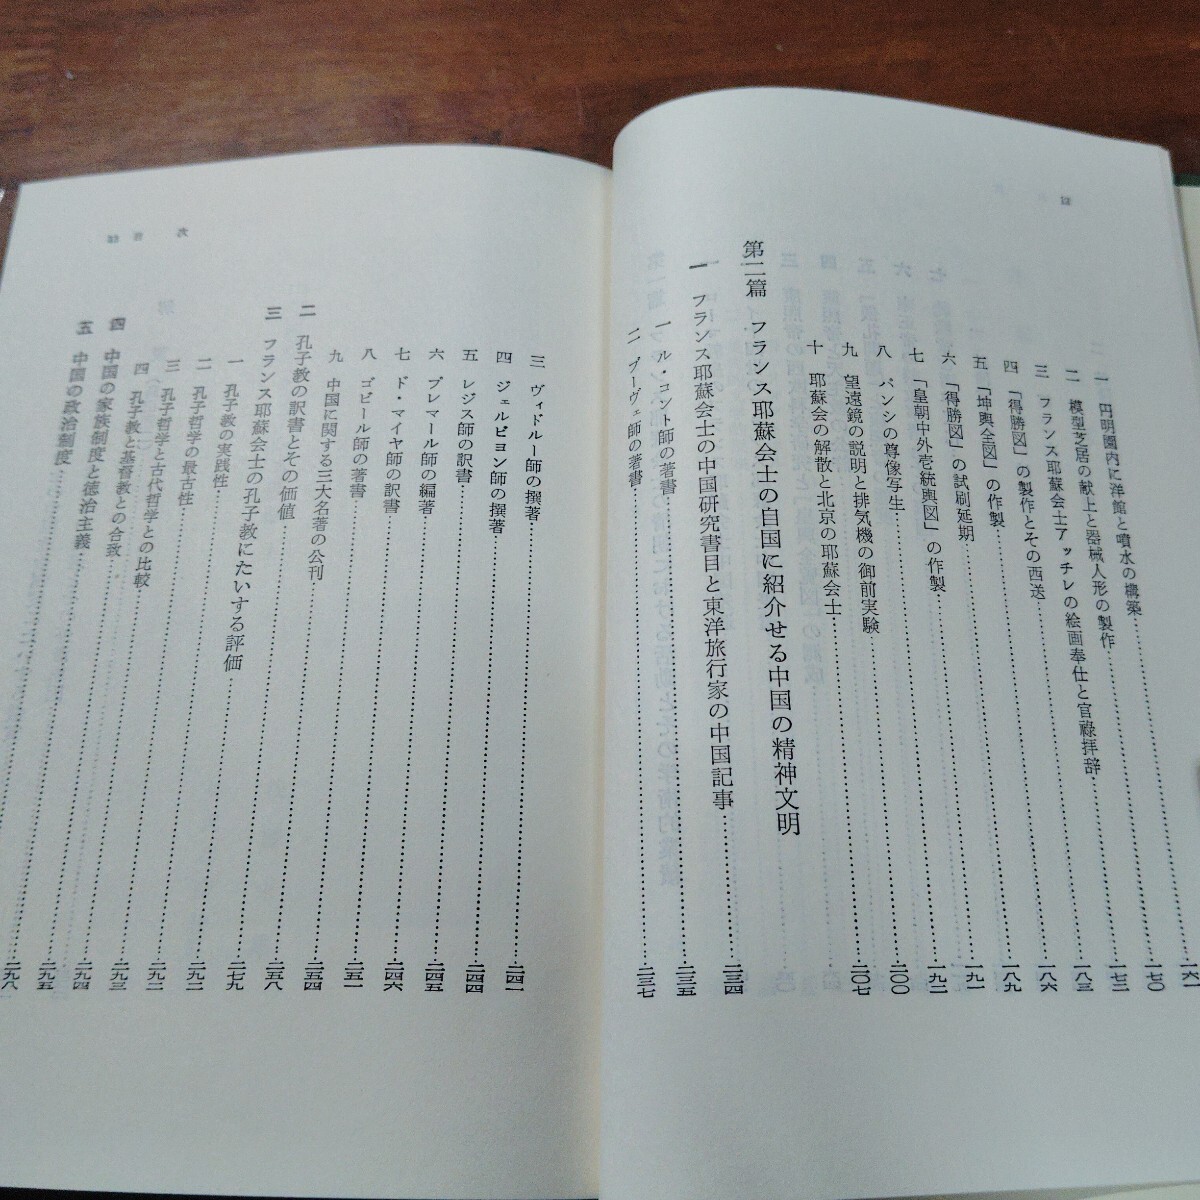 目
一 円明園内に洋館と噴水の構築……一七〇
二 模型芝居の献上と器械人形の製作……一七三
三 フランス耶蘇会士アッチレの絵画奉仕と官祿拝辞……一八三
四 「得勝図」の製作とその西送……一八六
五 「坤輿全図」の作製……一八九
六 「得勝図」の試刷延期……一九一
七 「皇朝中外壱統輿図」の作製……一九二
八 パンシの尊像写生……二〇〇
九 望遠鏡の説明と排気機の御前実験……二〇七
十 耶蘇会の解散と北京の耶蘇会士
第二篇 フランス耶蘇会士の自国に紹介せる中国の精神文明
一 フランス耶蘇会士の中国研究書目と東洋旅行家の中国記事……二三四
一 ル・コント師の著書……二三五
二 ブーヴェ師の著書……二三七
目次
三 ヴィドルー師の撰著……二四一
四 ジェルビヨン師の撰著……二四四
五 レジス師の訳書……二四四
六 プレマール師の編著……二四五
七 ド・マイヤ師の訳書……二四六
八 ゴビール師の著書……二五一
九 中国に関する三大名著の公刊……二五四
二 孔子教の訳書とその価値……二五八
三 フランス耶蘇会士の孔子教にたいする評価……二七九
一 孔子教の実践性……二九二
二 孔子哲学の最古性……二九二
三 孔子哲学と古代哲学との比較……二九三
四 孔子教と基督教との合致……二九四
四 中国の家族制度と徳治主義……二九五
五 中国の政治制度……二九八